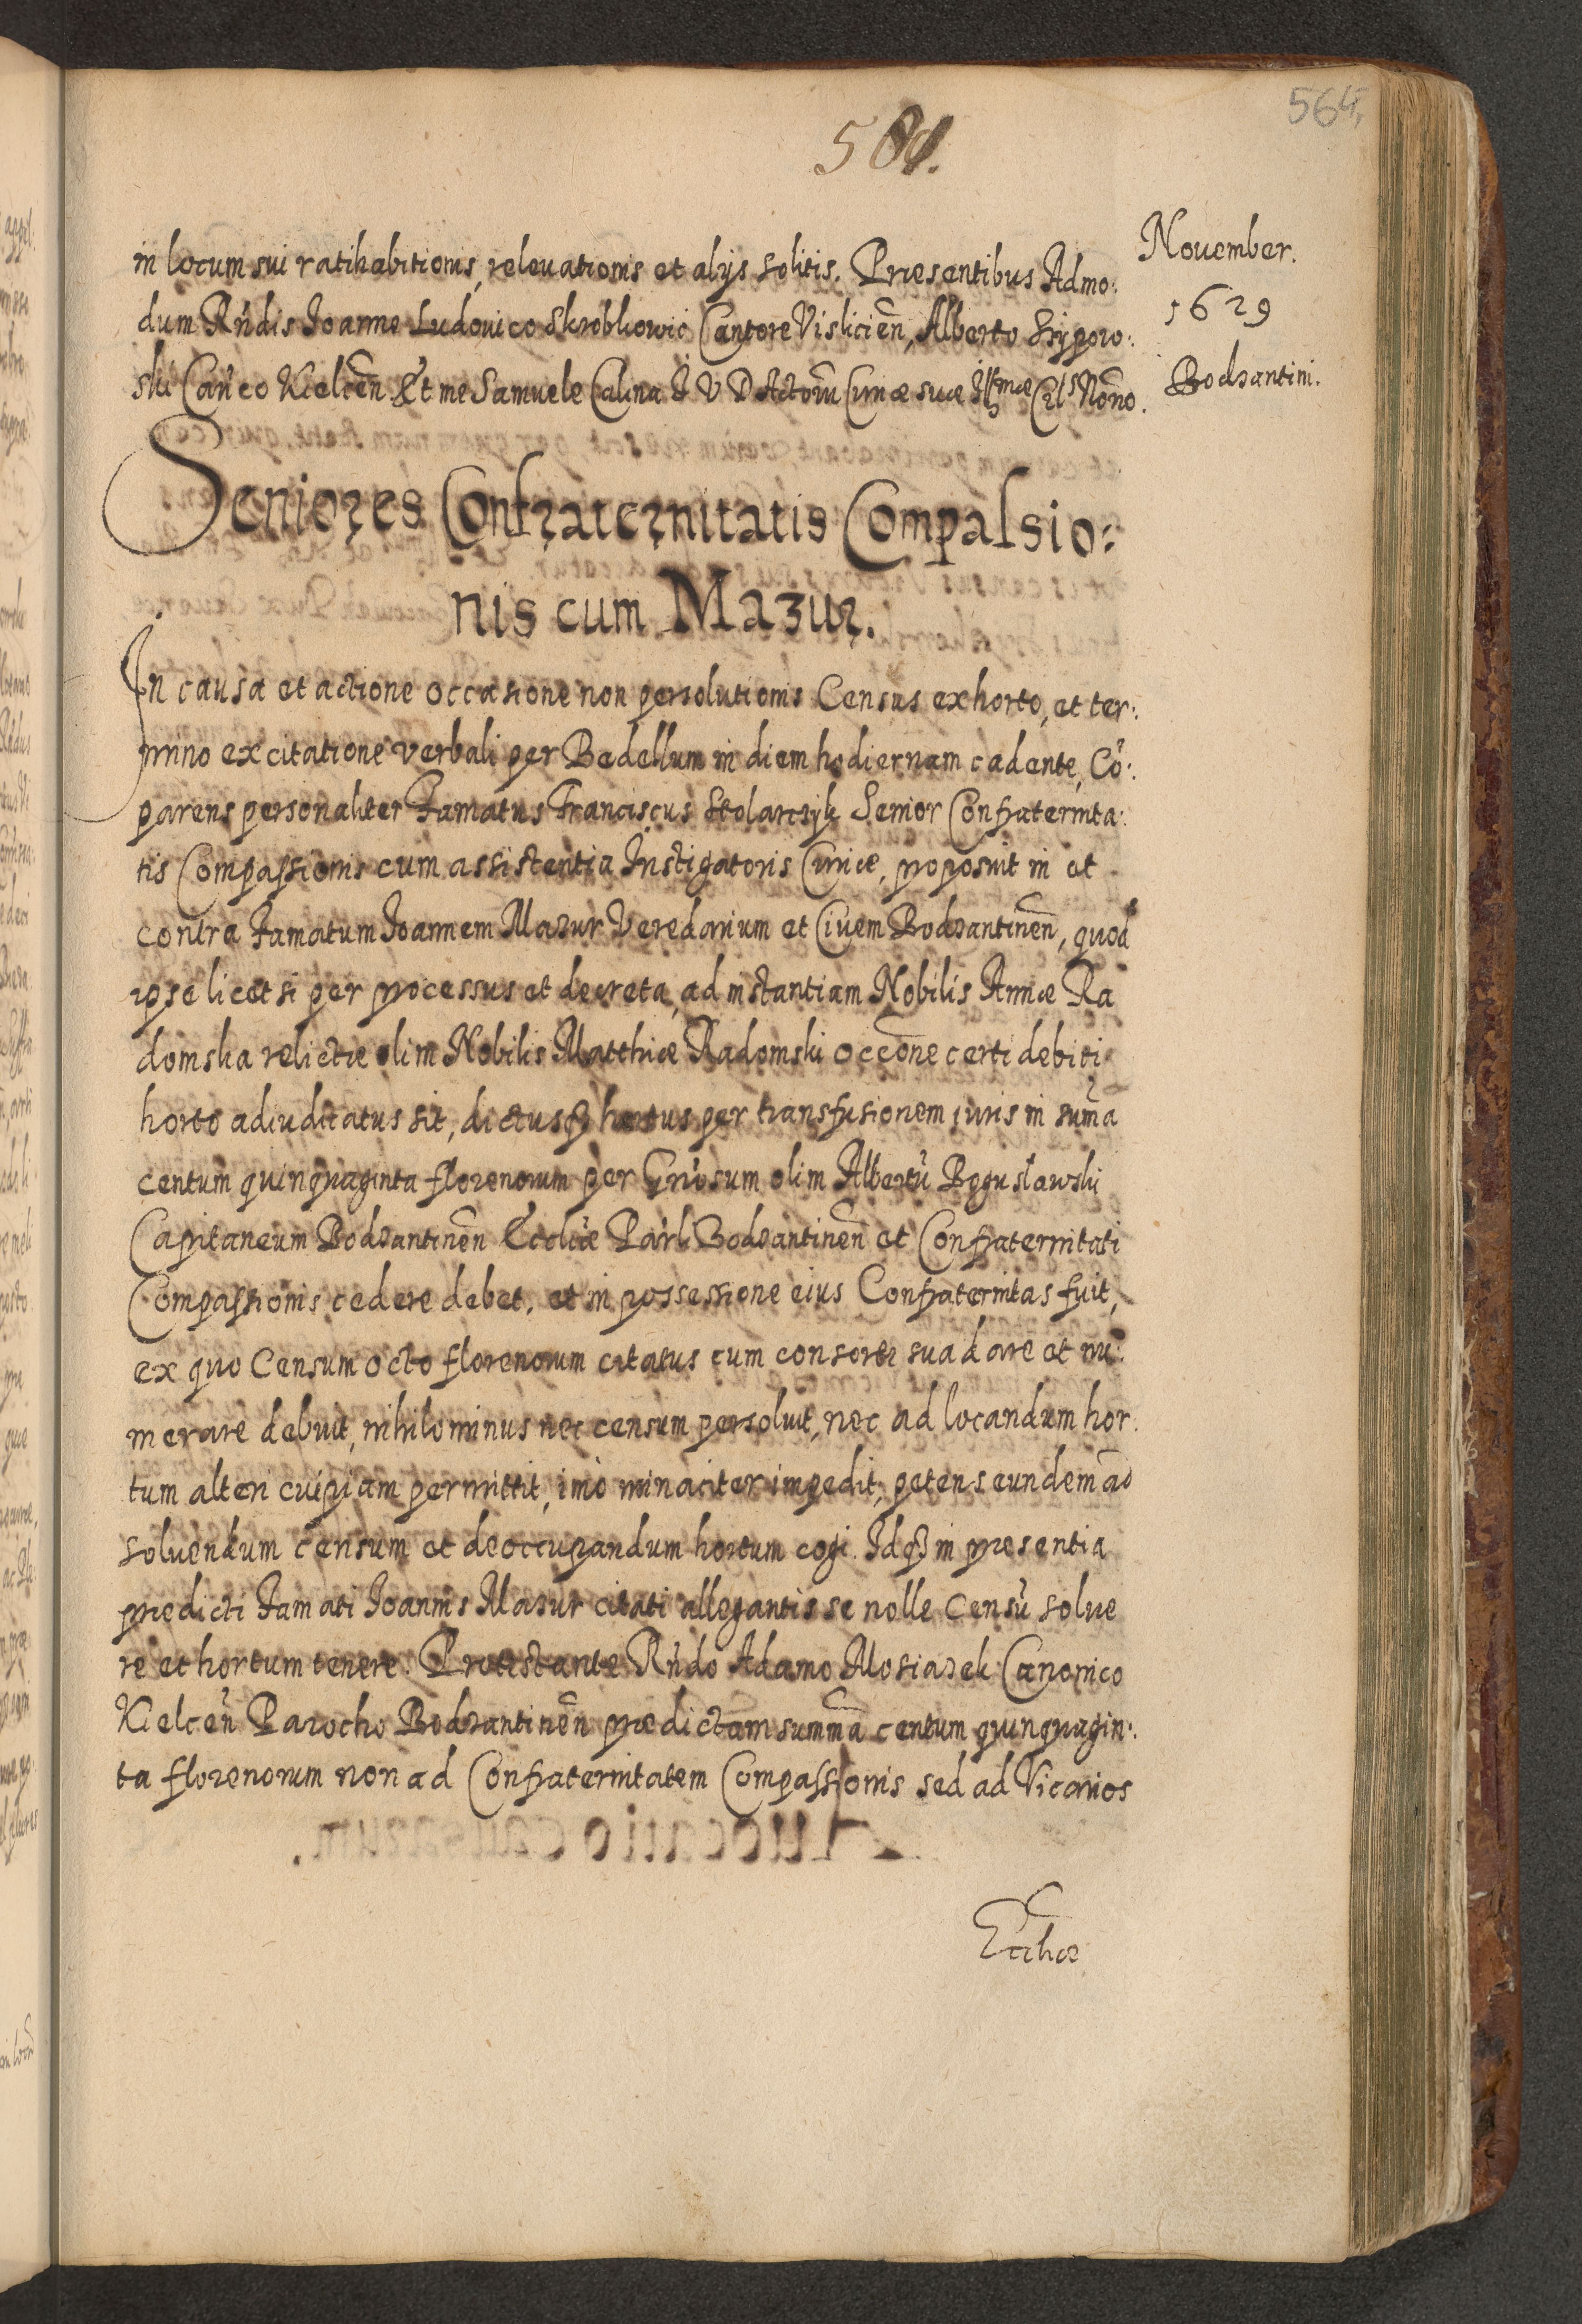 564.
581.
November.
1629
Bodzantini.
in locum sui ratihabitionis, releuationis et alijs solitis. Præsentibus Admo:
dum Rñdis Joanne Ludouico Skrobkowic Cantore Visliciēn, Alberto
ski Cañco Kielcēn. Et me Samuele Calina J V D Actorū Curiæ suæ Illmæ Cels Nōrio.
Seniores Confraternitatis Compassio:
nis cum Mazur.
In causa et actione occasione non persolutionis Census ex horto, et ter:
mino ex citatione verbali per Bedellum in diem hodiernam cadente, Cō:
parens personaliter Famatus Franciscus Stolarczyk Senior Confraternita:
tis Compassionis cum assistentia Instigatoris Curiæ, proposuit in et
contra Famatum Joannem Mazur Veredarium et Ciuem Bodzantinēn, quod
ipse licet si per processus et decreta, ad instantiam Nobilis Annæ Ra
domska relictæ olim Nobilis Matthiæ Radomski occōne certi debiti
horto adiudicatus sit, dictusqꝫ hortus per transfusionem iuris in sum̄a
centum quinquaginta florenorum per Gñosum olim Albertū Bogusławski
Capitaneum Bodzantinēn Eccliæ Parli Bodzantinēn et Confraternitati
Compassionis cedere debet, et in possessione eius Confraternitas fuit,
ex quo Censum octo florenorum citatus cum consorte sua dare et nu:
merare debuit, nihilominus nec censum persoluit, nec ad locandum hor:
tum alteri cuipiam permittit, imò minaciter impedit, petens eundem ad
soluendum censum et deoccupandum hortum cogi. Idqꝫ in præsentia
prædicti Famati Joannis Mazur citati allegantis se nolle Censū solue
re et hortum tenere. Protestante Rñdo Adamo Mosiazek Canonico
Kielcēn Parocho Bodzantinēn prædictam summā centum quinquagin:
ta florenorum non ad Confraternitatem Compassionis sed ad Vicarios
Eccliæ